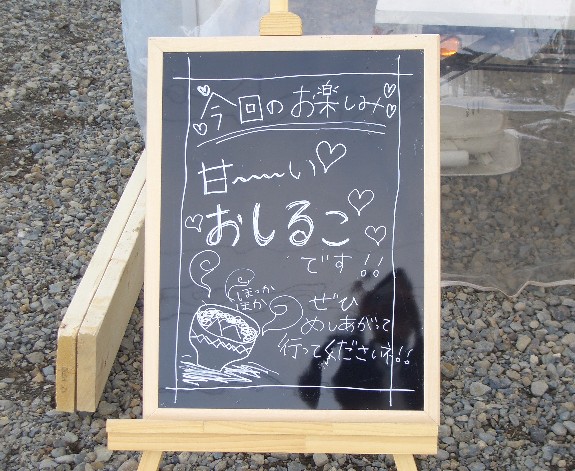 今回のお楽しみ
甘〜〜い
おしるこ
です!!
ほっか
ほか
ぜひ
めしあがって
行ってくださいネ!!